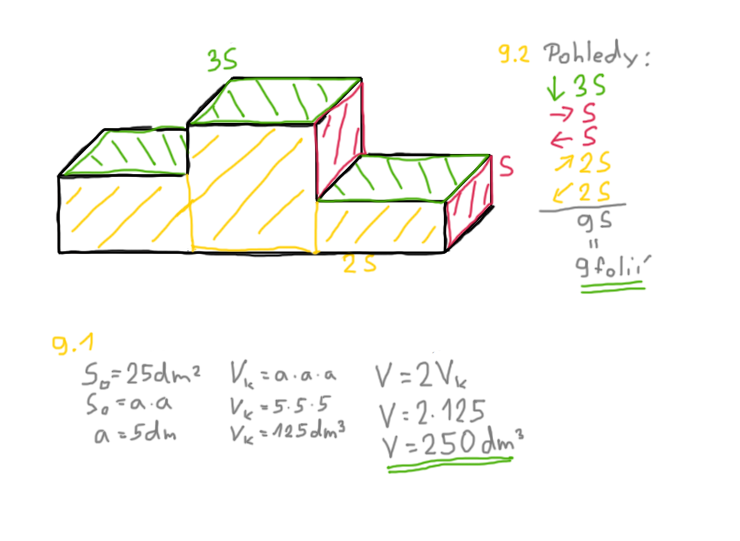 3S
S
2S
9.2 Pohledy:
↓ 3S
→ S
← S
↗ 2S
↙ 2S
9S
=
9 folií
9.1
S□ = 25dm²
S□ = a·a
a = 5dm
Vk = a·a·a
Vk = 5·5·5
Vk = 125dm³
V = 2Vk
V = 2·125
V = 250dm³